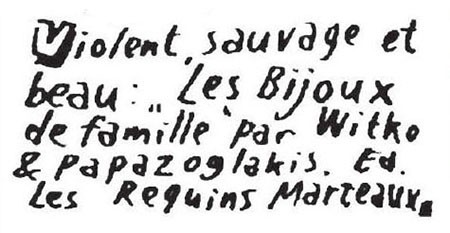 Violent, sauvage et
beau: „Les Bijoux
de famille" par Witko
& Papazoglakis. Ed.
Les Requins Marteaux.